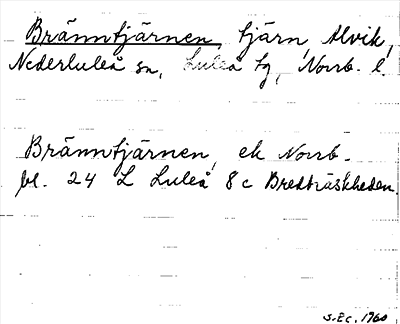 Bränntjärnen, tjärn, Alvik,
Nederluleå sn, Luleå tg, Norrb. l.
Bränntjärnen, ek Norrb.
bl. 24 L Luleå 8 c Bredträskheden.
S.Ec. 1960